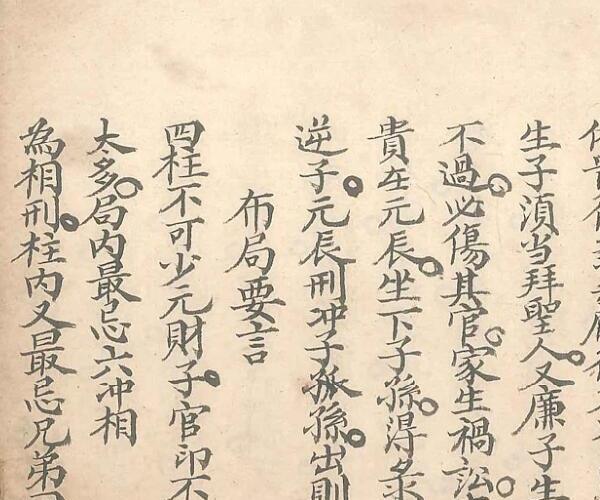 生子須当拜聖人。又廉子生
不過。必傷其官。家生禍訟。
貴在元辰。坐下子孫。得
逆子。元辰刑冲子孤孫。出則
布局要言
四柱不可少元財子。官印不
太多。局内最忌六冲相
為相刑。柱内又最忌兄弟